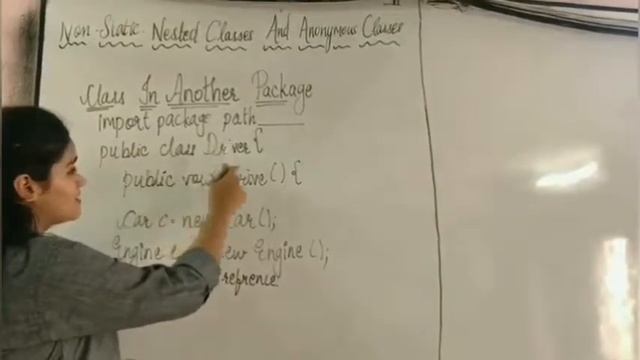 Non-Static Nested Classes And Anonymous Classes
Class In Another Package
import package path____
public class Driver{
public drive () {
Car c = new Car ();
Engine new Engine ();
refrence